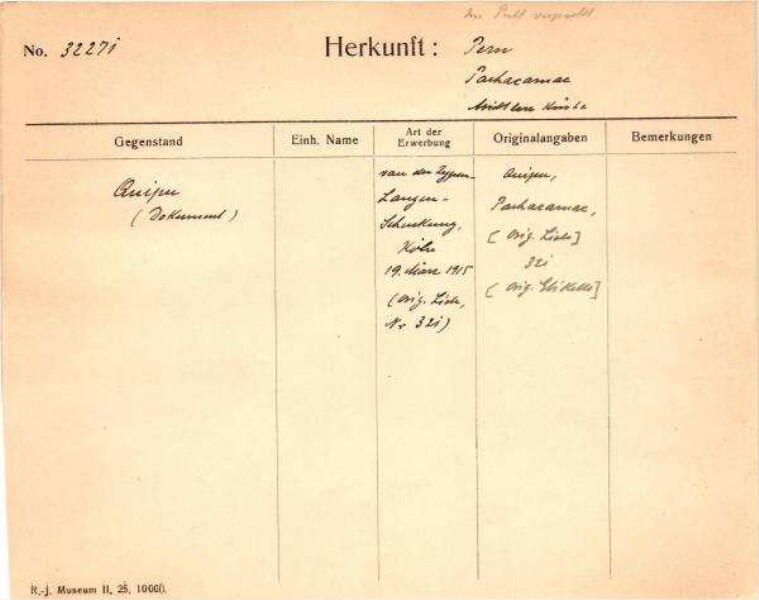 Im Pult verpackt
No. 3227i Herkunft: Peru
Pachacamac
Mittlere Küste
Gegenstand
Einh. Name
Art der Erwerbung
Originalangaben
Bemerkungen
Quipu
(Dokument)
van der Zypen-
Langen-
Schenkung,
Köln
19. März 1915
(Orig. Liste,
Nr 32i)
Quipu,
Pachacamac,
[Orig. Liste]
32i
[Orig. Etikette]
R.-J. Museum II, 25, 10000.